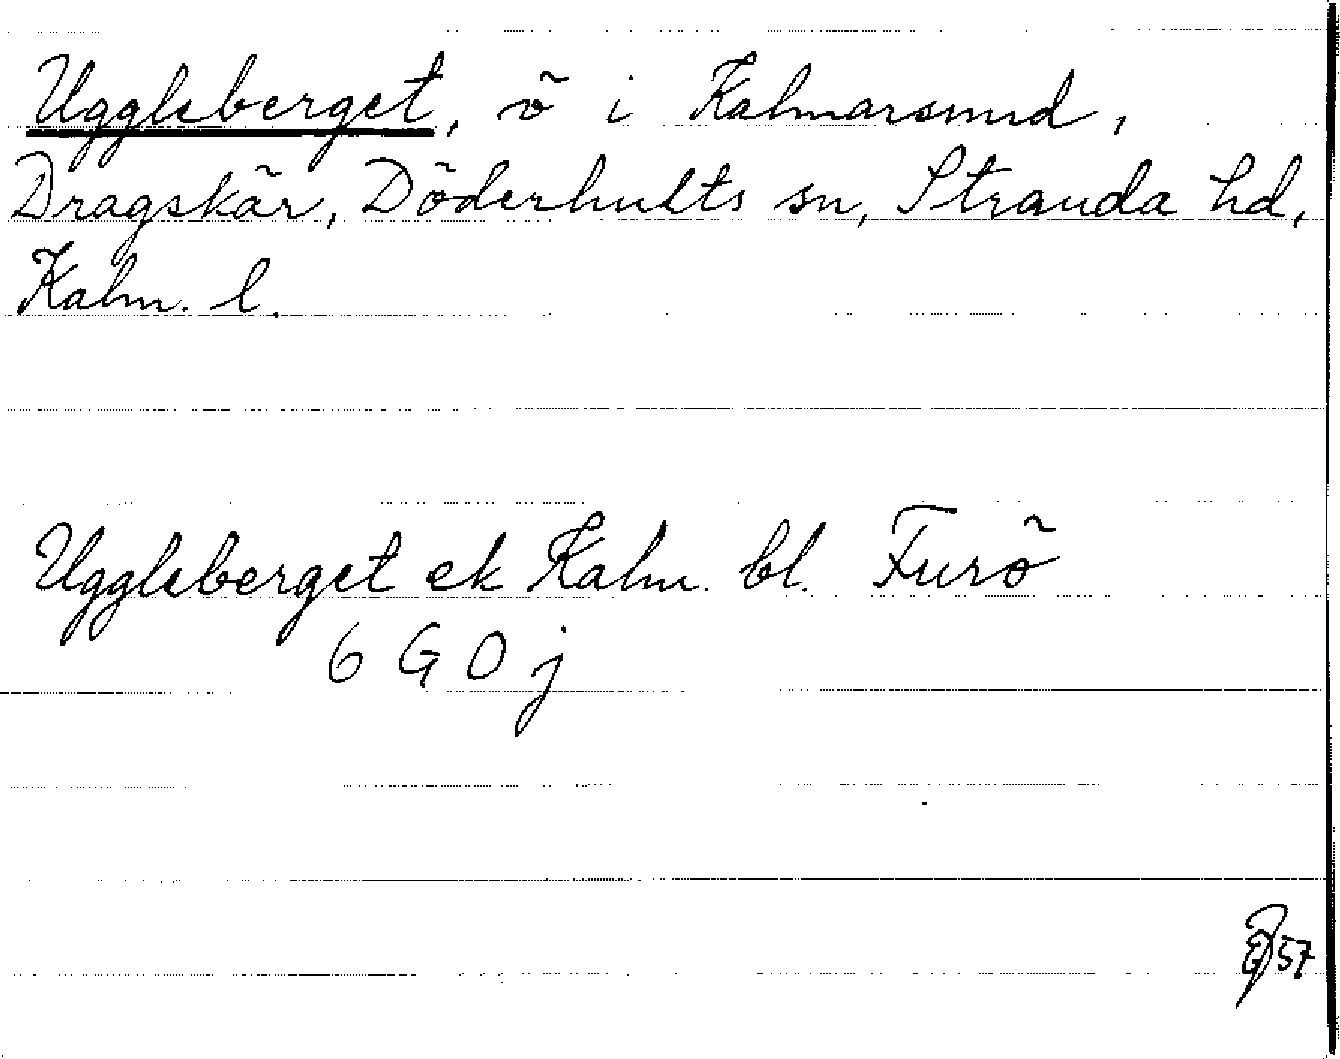 Uggleberget, ö i Kalmarsund,
Dragskär, Döderhults sn, Stranda hd,
Kalm. l.
Uggleberget ek Kalm. bl. Furö
6 G 0 j
57